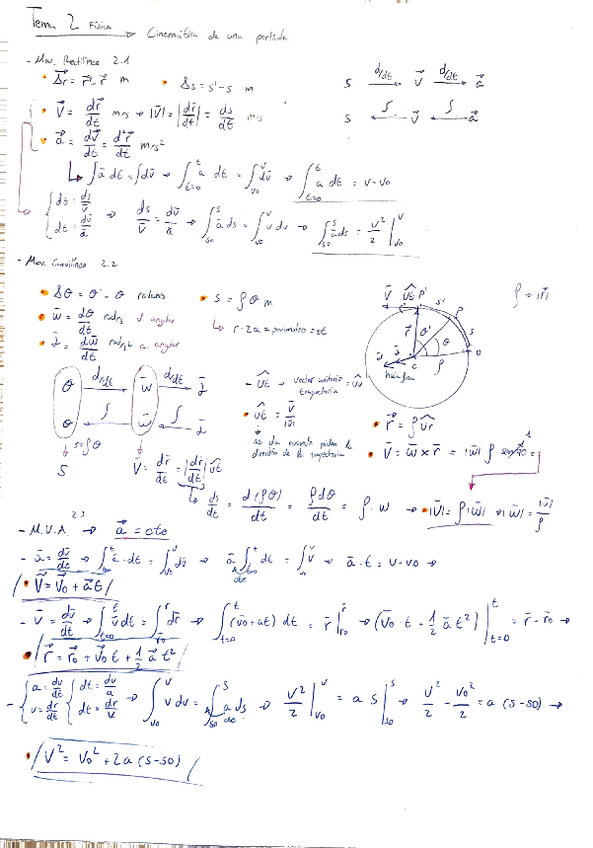 Tema 2 Física
Cinemática de una partícula
- Mov. Rectilíneo 2.1
• Δr⃗ = r⃗' - r⃗ m • Δs = s' - s m
s —d/dt→ v⃗ —d/dt→ a⃗
• v⃗ = dr⃗/dt m/s → |v⃗| = |dr⃗/dt| = ds/dt m/s
s ←∫— v⃗ ←∫— a⃗
• a⃗ = dv⃗/dt = d²r⃗/dt m/s²
↳ ∫a⃗ dt = ∫dv⃗ → ∫_{t=0}^{t} a⃗ dt = ∫_{v0}^{v} dv⃗ → ∫_{t=0}^{t} a dt = v - v0
{ dt = ds/v⃗
dt = dv⃗/a⃗ → ds/v⃗ = dv⃗/a⃗ → ∫_{s0}^{s} a ds = ∫_{v0}^{v} v dv → ∫_{s0}^{s} a ds = v²/2 |_{v0}^{v}
- Mov. Curvilíneo 2.2
• Δθ = θ' - θ radians • s = ρθ m
ρ = |r⃗|
• w⃗ = dθ/dt rad/s v angular
↳ r·2π = perímetro
• α⃗ = dw⃗/dt rad/s² a. angular
V⃗ ût P' s' P s r⃗ θ' θ C ρ O
θ —d/dt→ w⃗ —d/dt→ α⃗
θ ←∫— w⃗ ←∫— α⃗
- ût → vector unitario trayectoria
• ût = v⃗/|v⃗|
dirección de la trayectoria
• r⃗ = ρ ûr
• v⃗ = w⃗ × r⃗ = |w⃗| ρ · sen 90 =
s = ρθ
S
v⃗ = dr⃗/dt = |dr⃗/dt| ût
↳ ds/dt = d(ρθ)/dt = ρdθ/dt = ρ · w → |v⃗| = ρ|w⃗| → |w⃗| = |v⃗|/ρ
2.3
- M.U.A. → a⃗ = cte
- a⃗ = dv⃗/dt → ∫_{t=0}^{t} a⃗ · dt = ∫_{v0}^{v} dv⃗ → a⃗ ∫_{t=0}^{t} dt = ∫_{v0}^{v} → a⃗ · t = v - v0 →
• v⃗ = v⃗0 + a⃗t
- v⃗ = dr⃗/dt → ∫_{t=0}^{t} v⃗ dt = ∫_{r0}^{r} dr⃗ → ∫_{t=0}^{t} (v⃗0 + at) dt = r⃗ |_{r0}^{r} → (v⃗0 · t + 1/2 a⃗ t²) |_{t=0}^{t} = r⃗ - r⃗0 →
• r⃗ = r⃗0 + v⃗0 t + 1/2 a⃗ t²
- { a = dv/dt { dt = dv/a
v = dr/dt dt = dr/v → ∫_{v0}^{v} v dv = ∫_{s0}^{s} a ds → v²/2 |_{v0}^{v} = a s |_{s0}^{s} → v²/2 - v0²/2 = a (s - s0) →
• v² = v0² + 2a (s - s0)